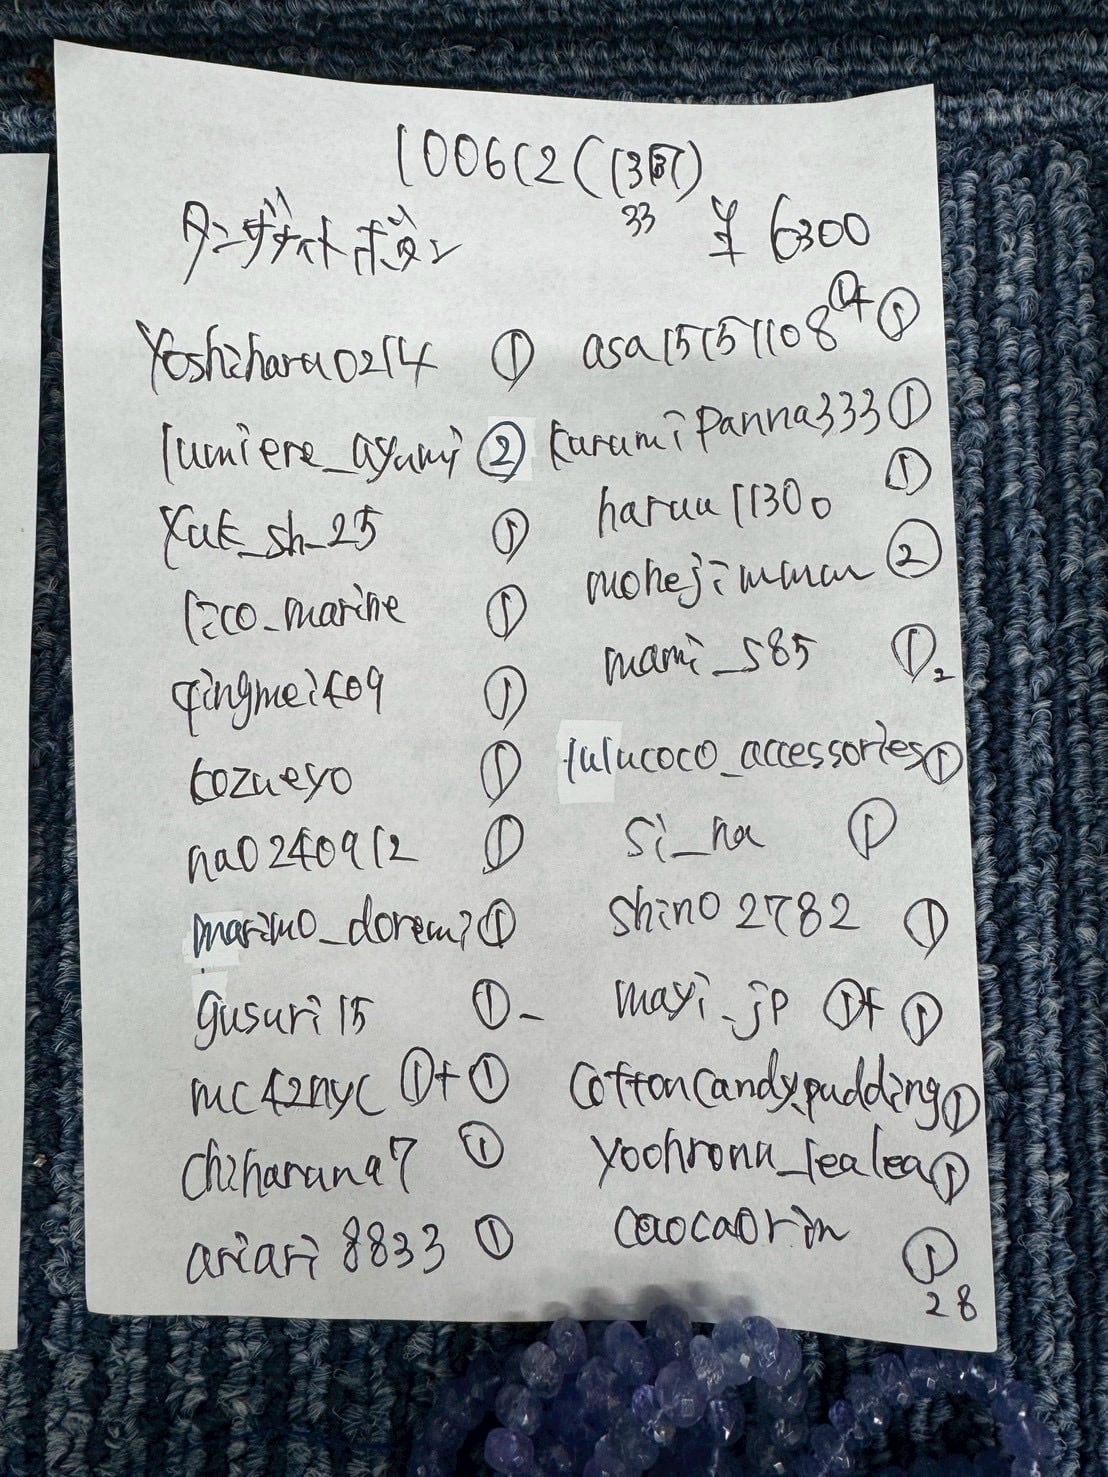 100612 (13时)
33
タンザナイトボタン ¥6300
Yoshiharu0214 ①
lumiere_ayumi ②
Yuk_sh_25 ①
lico_marine ①
qingmei409 ①
kozueyo ①
na0240912 ①
marimo_doremi ①
gusuri15 ①-
mc42nyc ①+①
chiharuna7 ①
ariari8833 ①
asa15151108 ①+①
kurumipanna333 ①
haruu1130 ①
mohejimumu ②
mami_s85 ①2
lulucoco_accessories ①
si_na ①
shino2782 ①
mayi_jp ①+①
cottoncandy.pudding ①
yoohronu_lealea ①
caocaorin ①
28